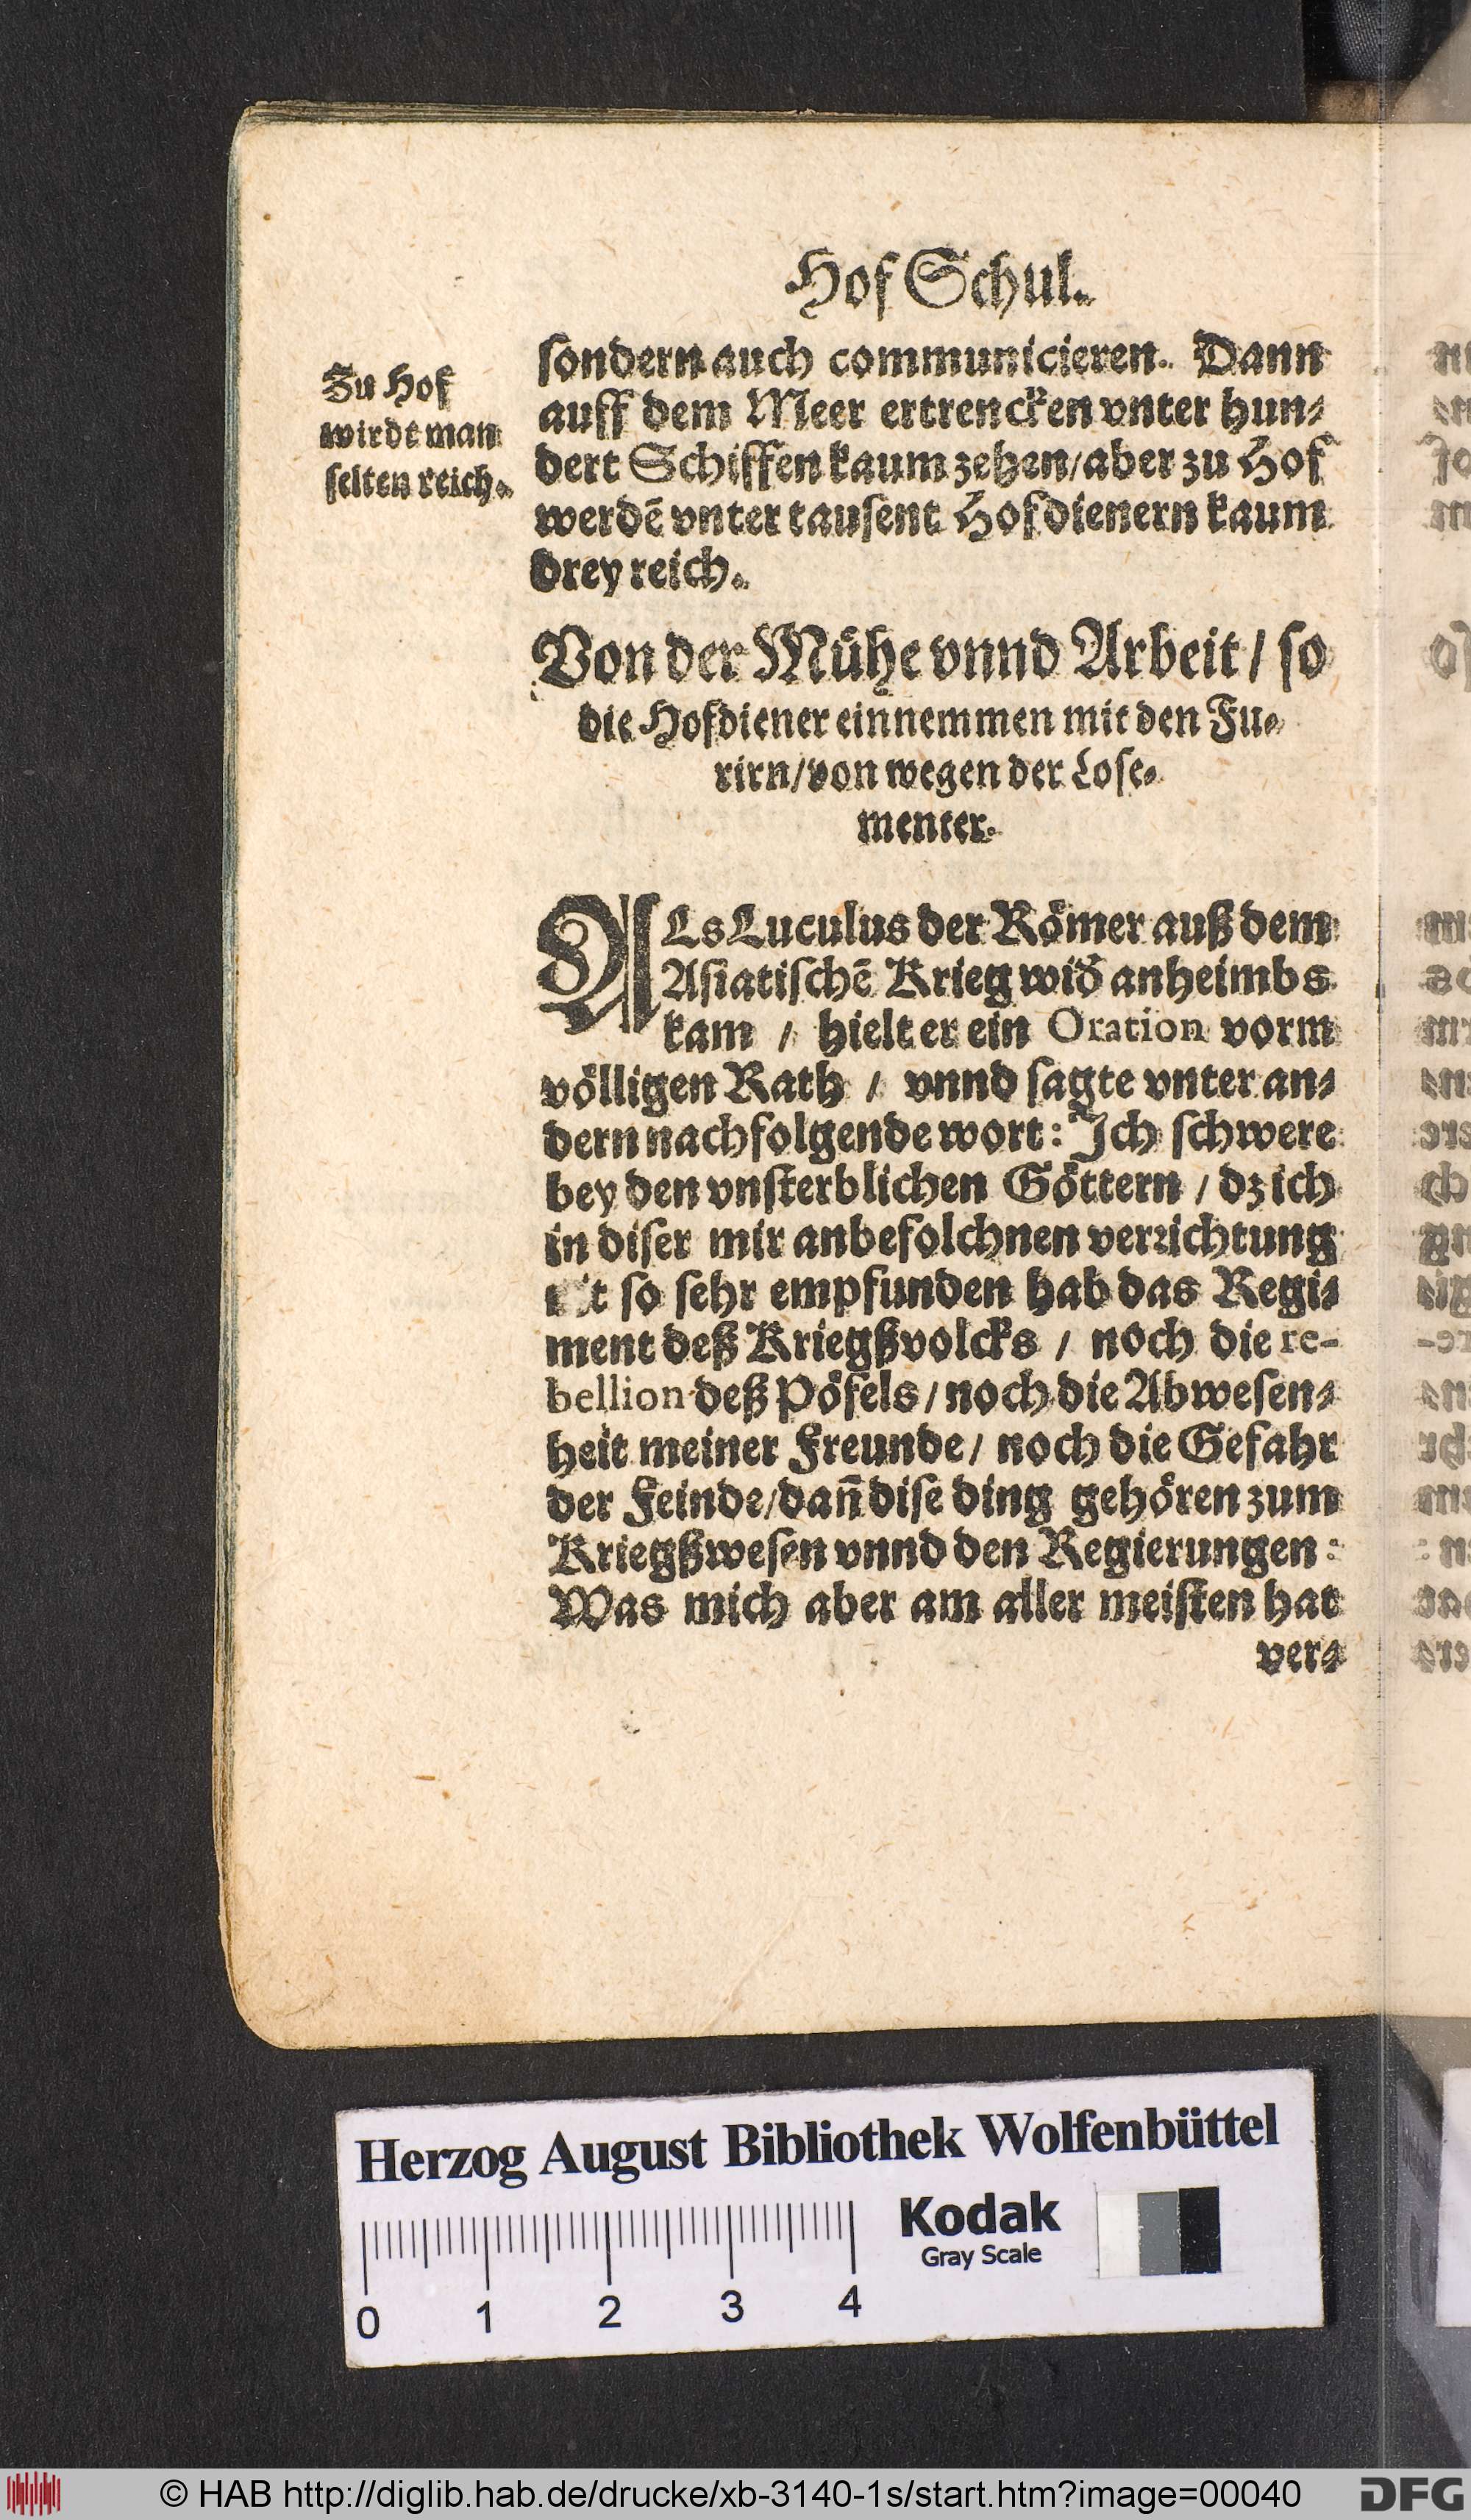 Hof Schul.
Zu Hof
wirdt man
selten reich.
sondern auch communicieren. Dann
auff dem Meer ertrencken vnter hun-
dert Schiffen kaum zehen/aber zu Hof
werdē vnter tausent Hofdienern kaum
drey reich.
Von der Mühe vnnd Arbeit / so
die Hofdiener einnemmen mit den Fu-
rirn/von wegen der Lose-
menter.
ALs Luculus der Römer auß dem
Asiatischē Krieg wid̄ anheimbs
kam / hielt er ein Oration vorm
völligen Rath / vnnd sagte vnter an-
dern nachfolgende wort: Ich schwere
bey den vnsterblichen Göttern / dz ich
in diser mir anbefolchnen verrichtung
so sehr empfunden hab das Regi-
ment deß Kriegßvolcks / noch die re-
bellion deß Pöfels/noch die Abwesen-
heit meiner Freunde/ noch die Gefahr
der Feinde/dañ dise ding gehören zum
Kriegßwesen vnnd den Regierungen:
Was mich aber am aller meisten hat
ver-
Herzog August Bibliothek Wolfenbüttel
Kodak
Gray Scale
0 1 2 3 4
© HAB http://diglib.hab.de/drucke/xb-3140-1s/start.htm?image=00040
DFG